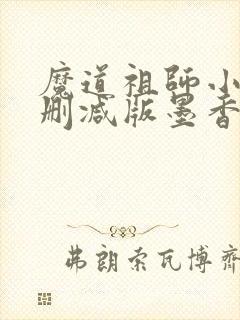 魔道祖师小
删减版墨香
弗朗索瓦博齐